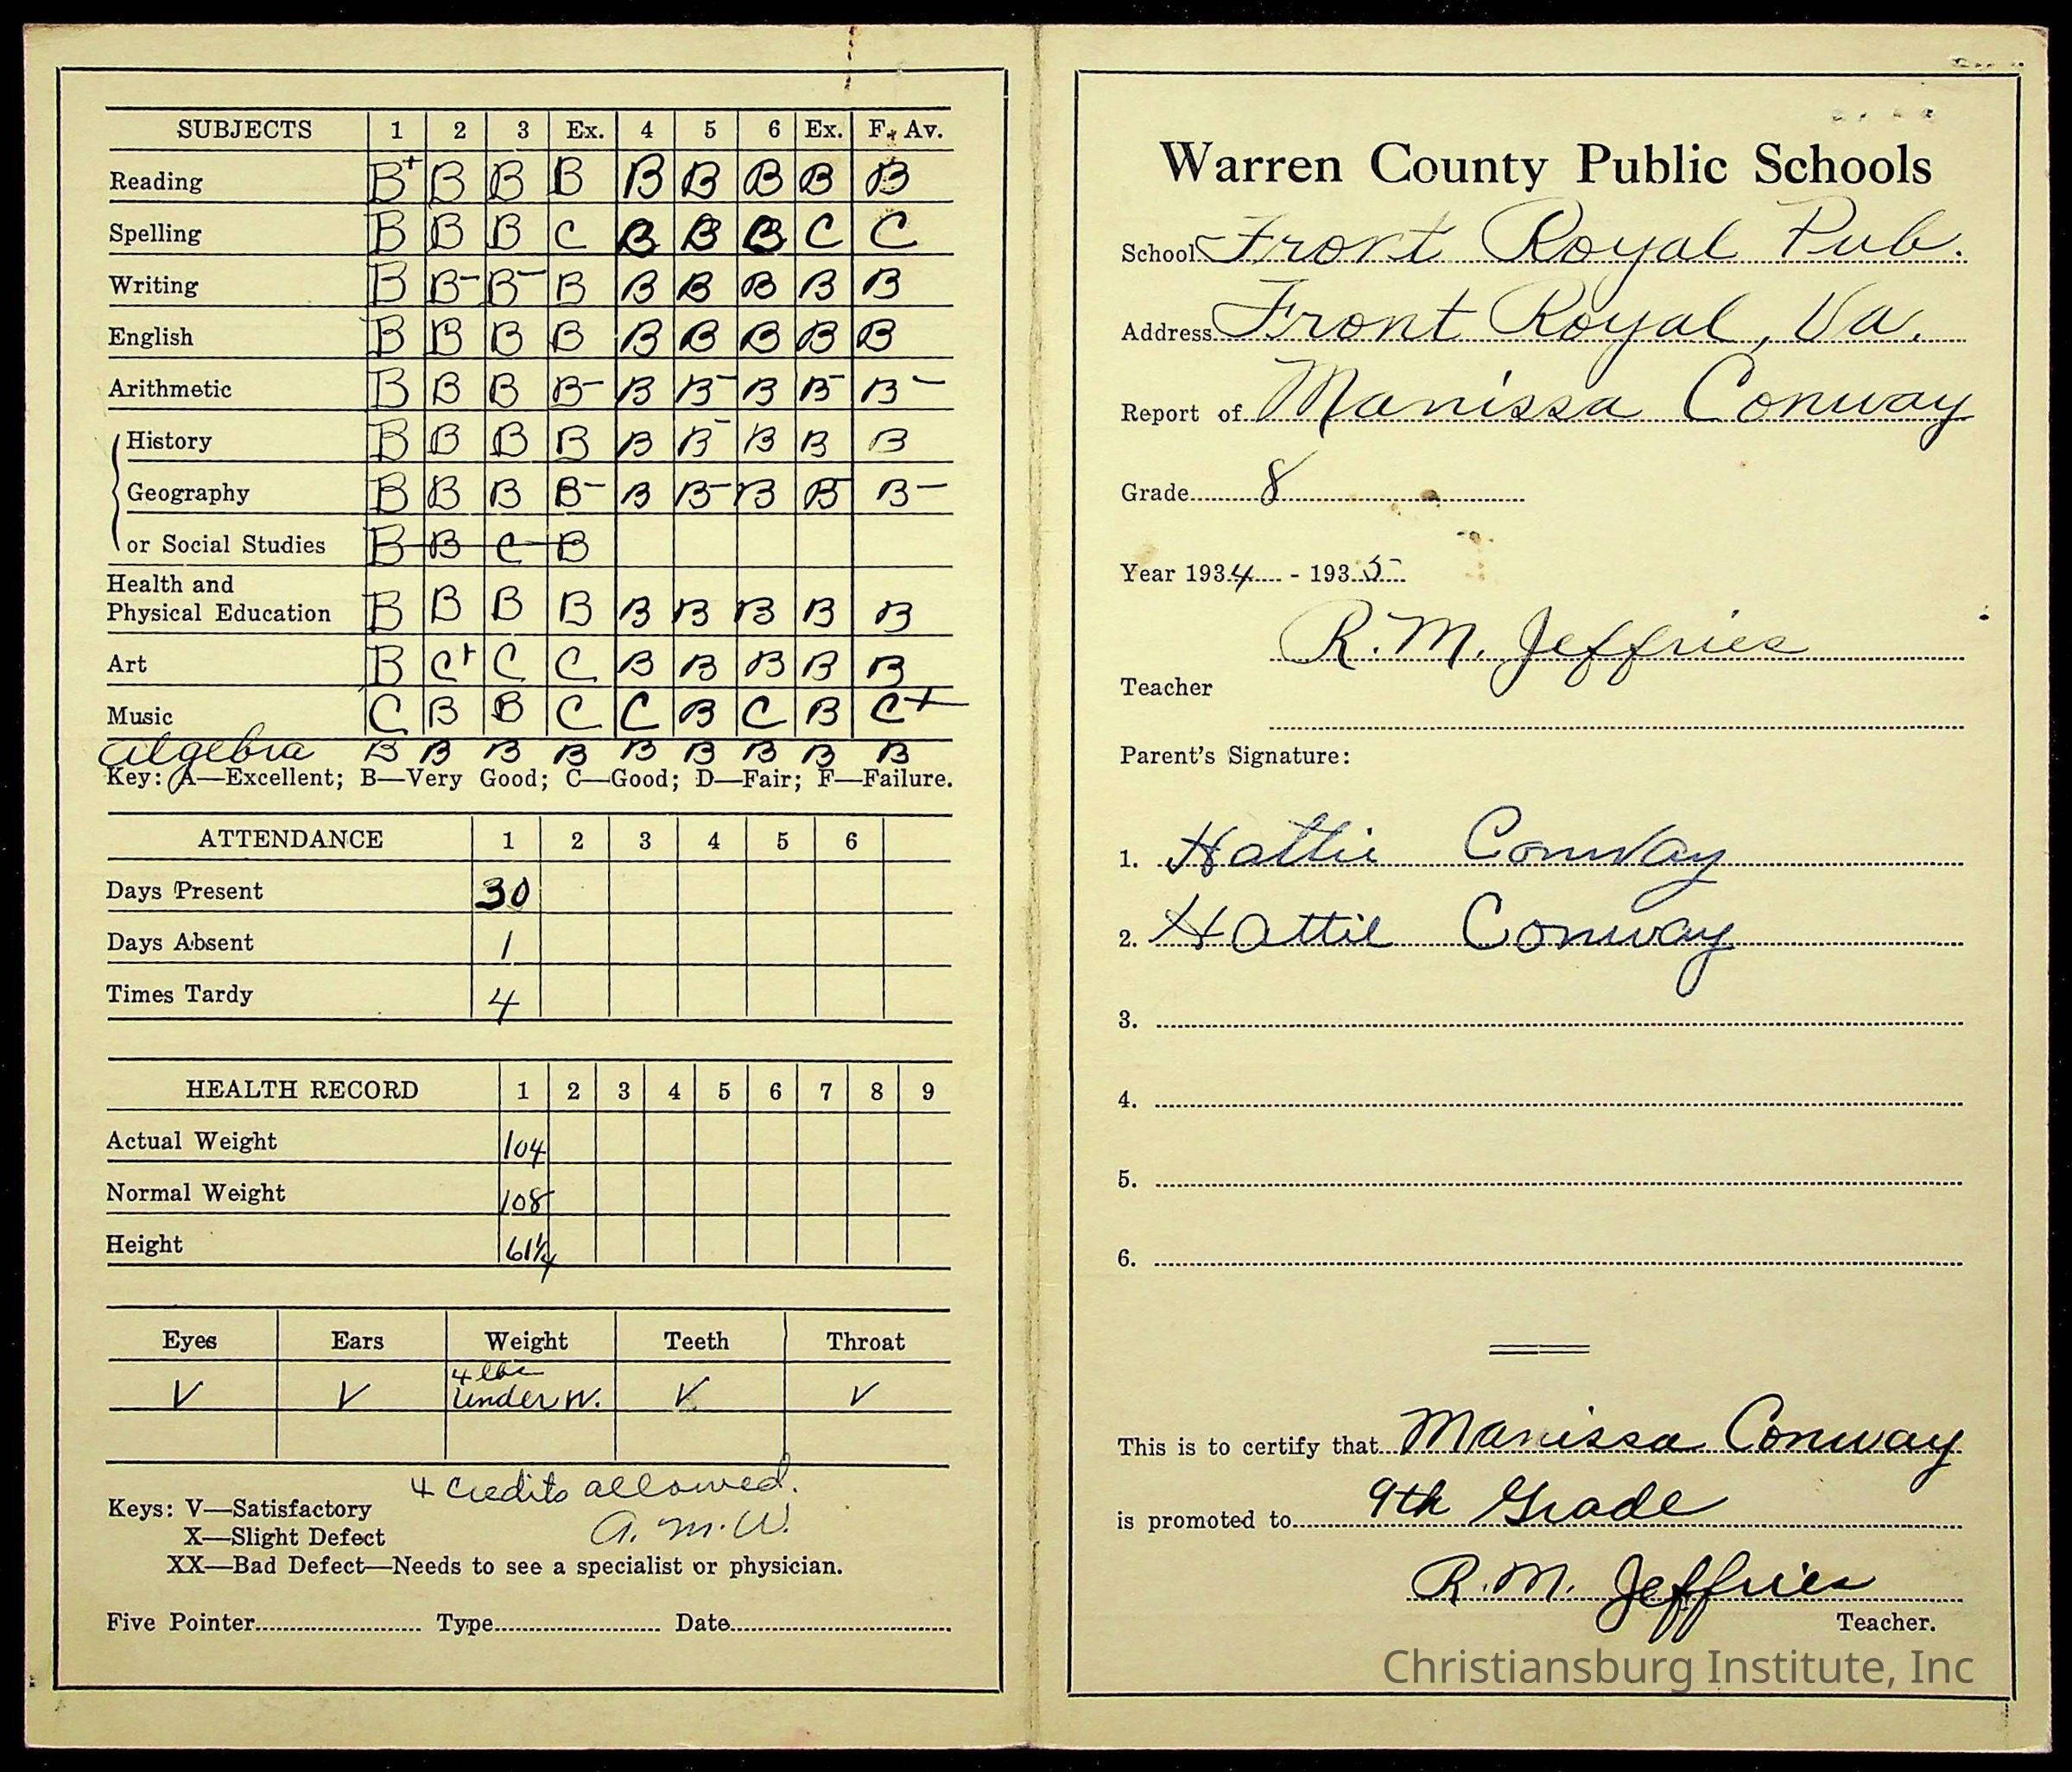 SUBJECTS 1 2 3 Ex. 4 5 6 Ex. F. Av.
Reading B+ B B B B B B B B
Spelling B B B C B B B C C
Writing B B- B- B B B B B B
English B B B B B B B B B
Arithmetic B B B B- B B- B B- B-
History B B B B B B- B B B
Geography B B B B- B B- B B- B-
or Social Studies B B C B
Health and
Physical Education B B B B B B B B B
Art B C+ C C B B B B B
Music C B B C C B C B C+
Algebra B B B B B B B B B
Key: A—Excellent; B—Very Good; C—Good; D—Fair; F—Failure.
ATTENDANCE 1 2 3 4 5 6
Days Present 30
Days Absent 1
Times Tardy 4
HEALTH RECORD 1 2 3 4 5 6 7 8 9
Actual Weight 104
Normal Weight 108
Height 61¼
Eyes Ears Weight Teeth Throat
4 lbs
V V Under W. V V
4 credits allowed.
Keys: V—Satisfactory
A. M. W.
X—Slight Defect
XX—Bad Defect—Needs to see a specialist or physician.
Five Pointer Type Date
Warren County Public Schools
School Front Royal Pub.
Address Front Royal, Va.
Report of Manissa Conway
Grade 8
Year 1934 - 1935
R. M. Jeffries
Teacher
Parent's Signature:
1. Hattie Conway
2. Hattie Conway
3.
4.
5.
6.
This is to certify that Manissa Conway
is promoted to 9th Grade
R. M. Jeffries
Teacher.
Christiansburg Institute, Inc